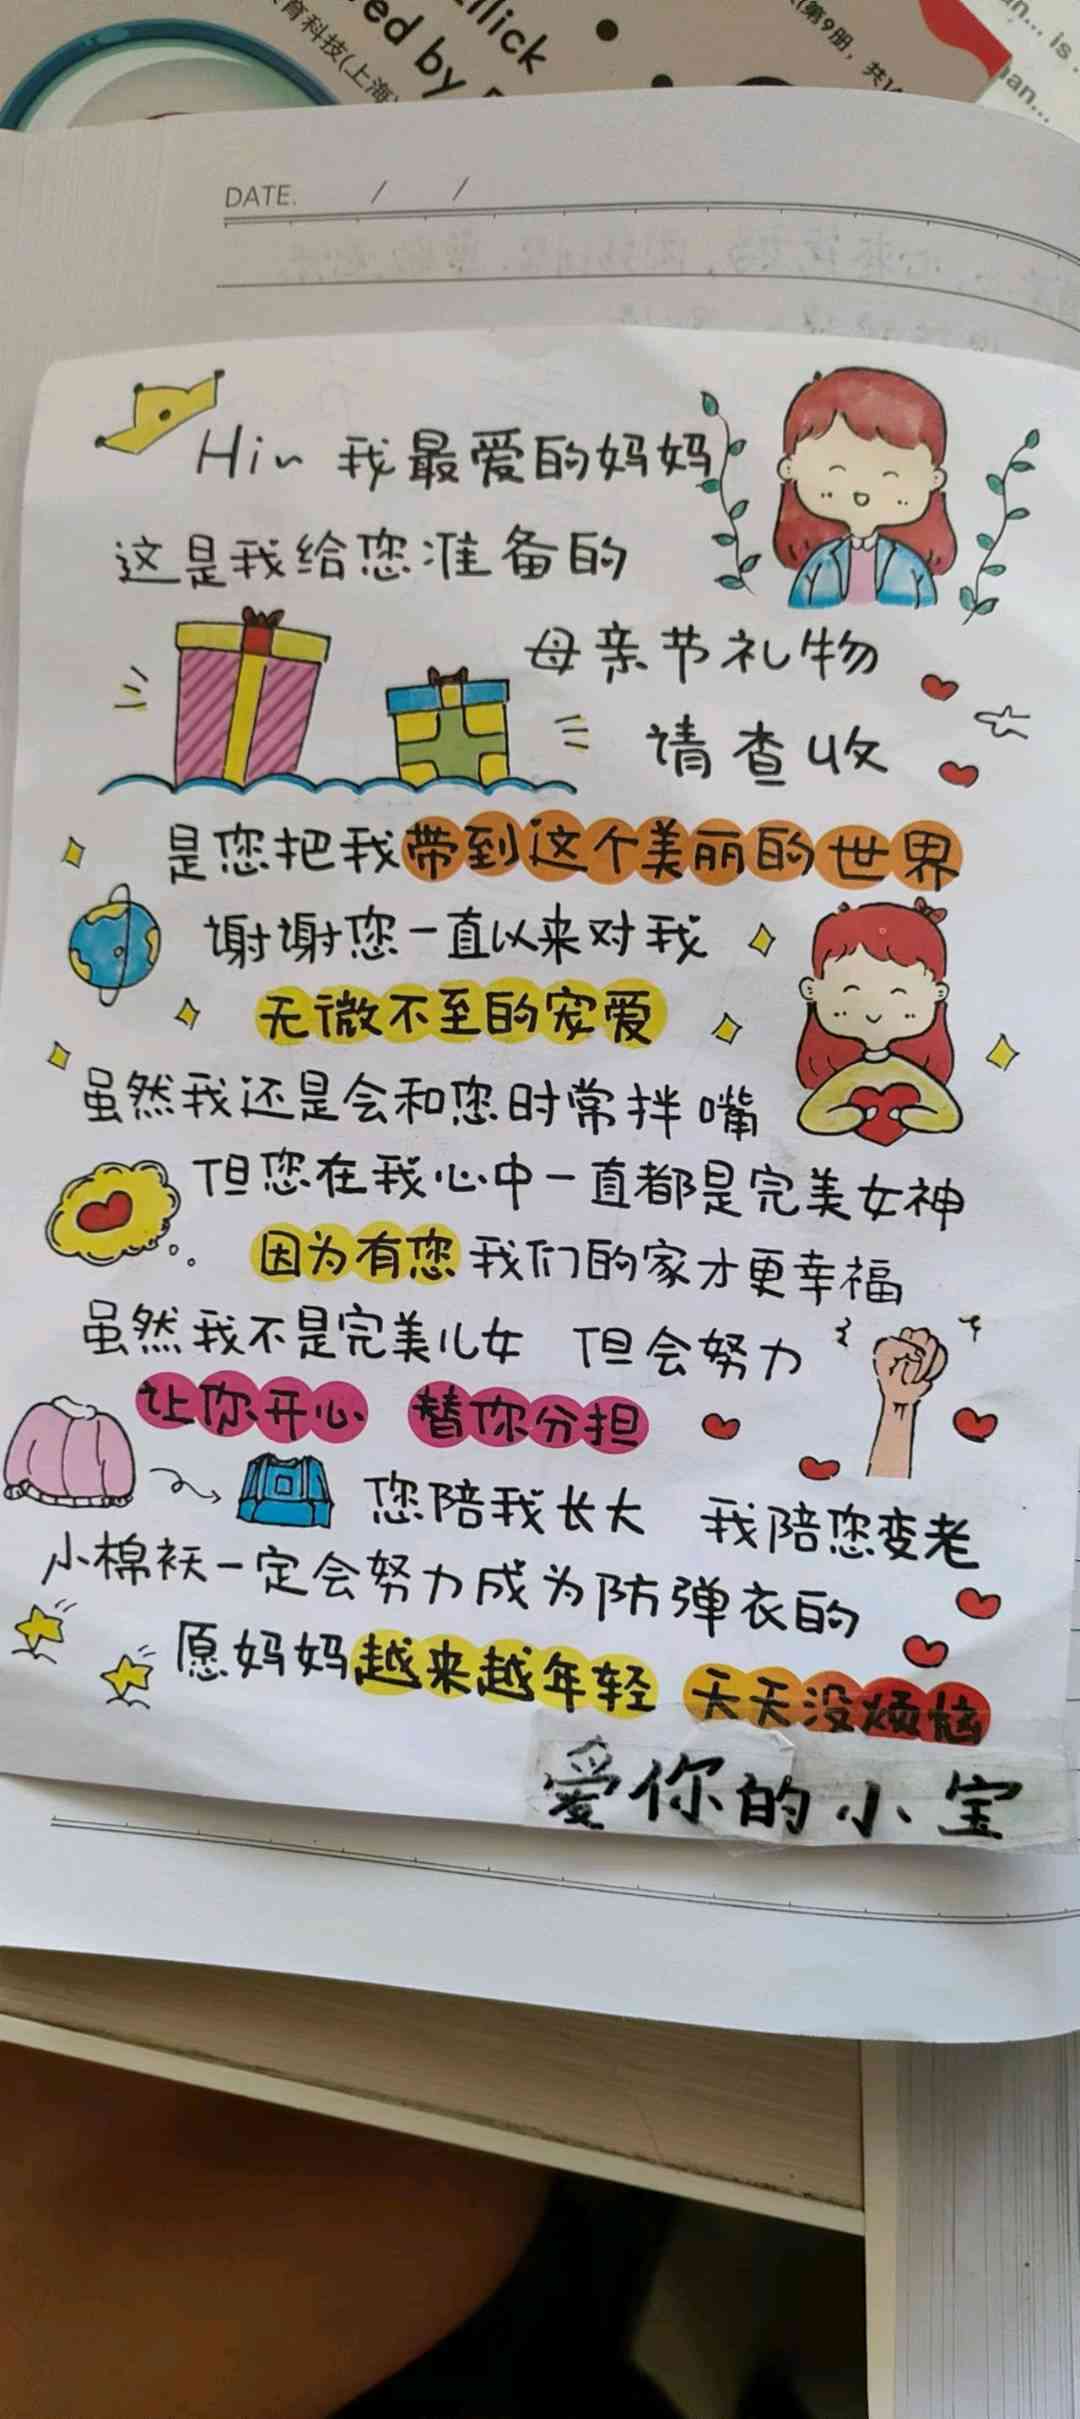 llick
ed by
育科技(上海
(第9册，共1
an... is
an...
DATE. / /
Hi~ 我最爱的妈妈
这是我给您准备的
母亲节礼物
请查收
是您把我带到这个美丽的世界
谢谢您一直以来对我
无微不至的宠爱
虽然我还是会和您时常拌嘴
但您在我心中一直都是完美女神
因为有您我们的家才更幸福
虽然我不是完美儿女 但会努力
让你开心 替你分担
您陪我长大 我陪您变老
小棉袄一定会努力成为防弹衣的
愿妈妈越来越年轻 天天没烦恼
爱你的小宝